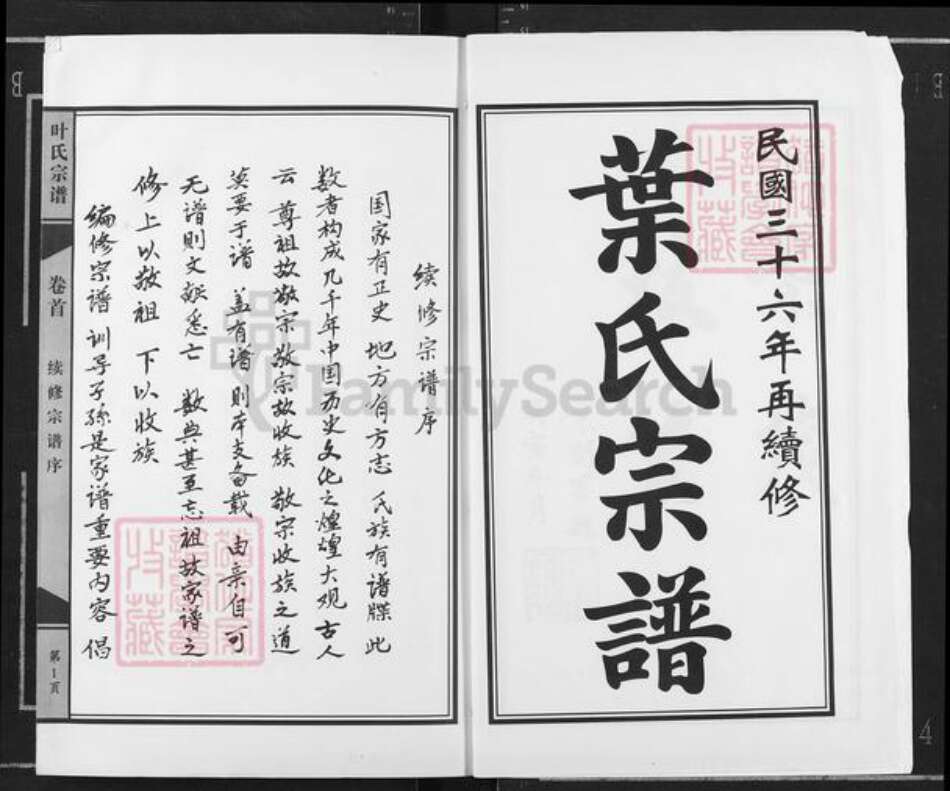 民國三十六年再續修
葉氏宗譜
续修宗谱序
国家有正史 地方有方志 氏族有谱牒 此
数者构成几千年中国历史文化之煌煌大观 古人
云 尊祖故敬宗 敬宗故收族 敬宗收族之道
莫要于谱 盖有谱则本支备载 由亲自可
无谱则文献悉亡 数典甚至忘祖 故家谱之
修 上以敬祖 下以收族
编修宗谱 训导子孫是家谱重要内容 倡
叶氏宗谱
卷首
续修宗谱序
第1页
FamilySearch
收藏
收藏
B
4